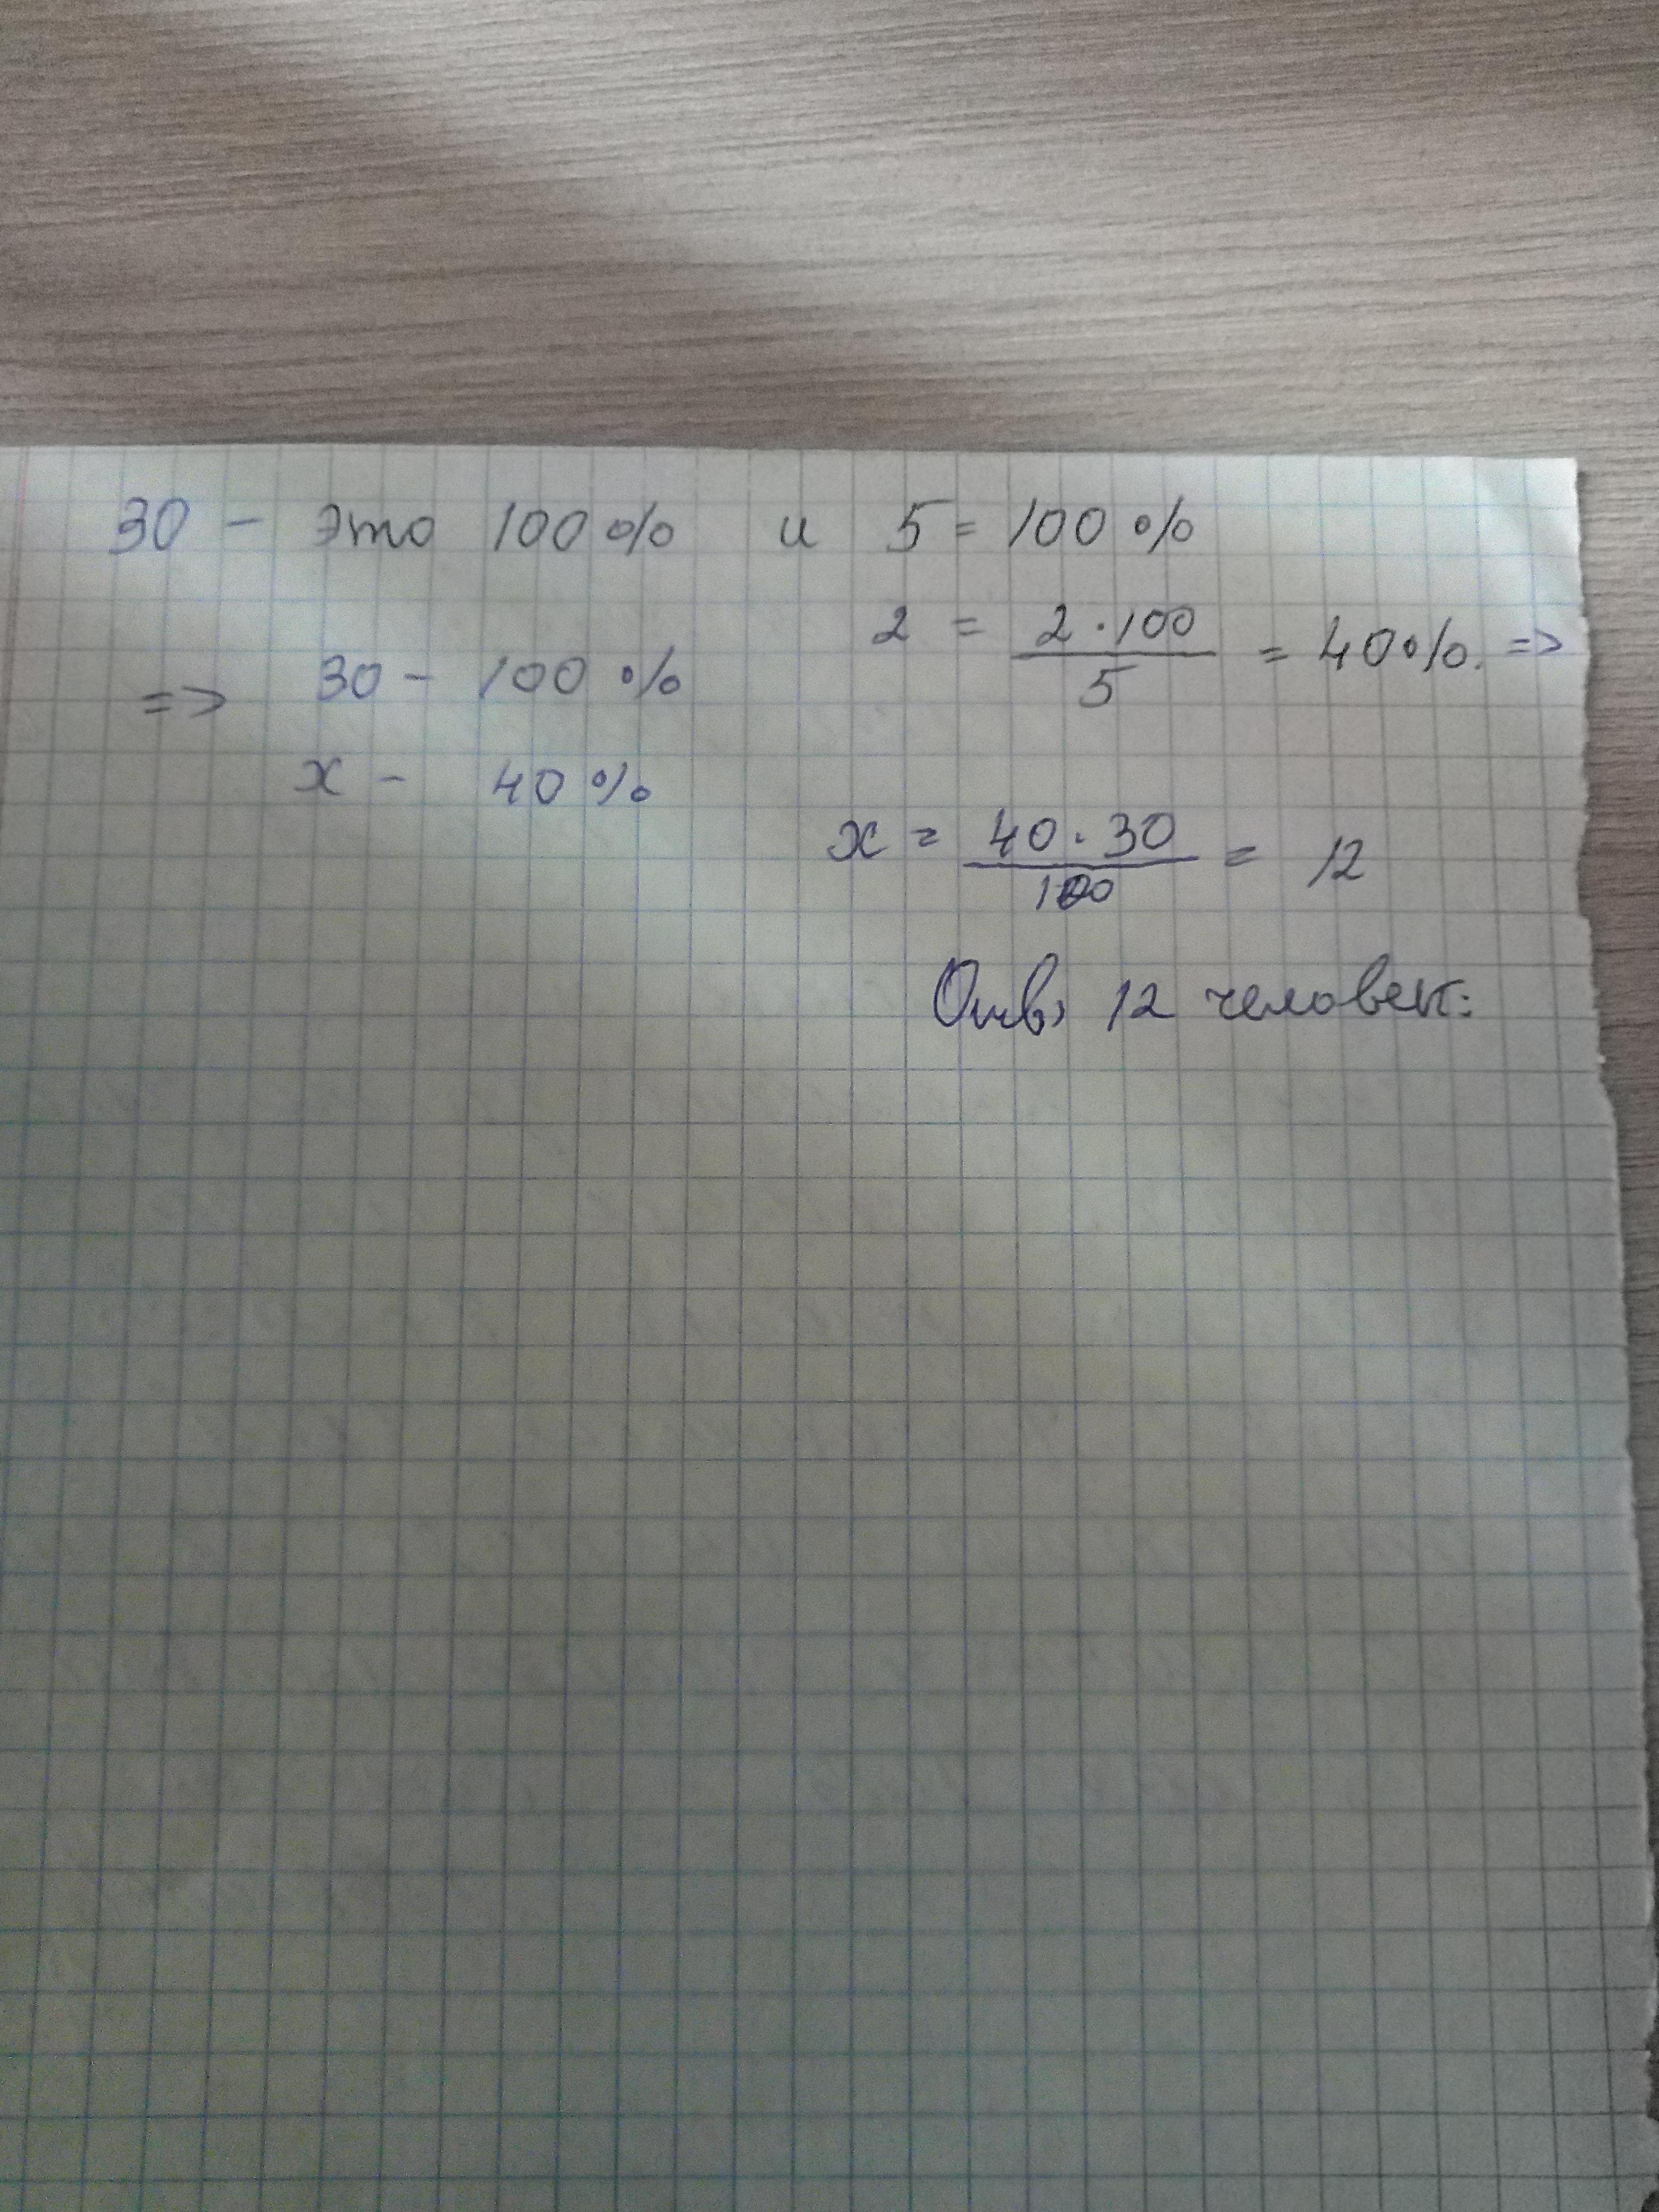 30 - это 100% и 5 = 100%
2 = 2·100/5 = 40%. =>
=> 30 - 100%
x - 40%
x = 40·30/100 = 12
Отв, 12 человек.